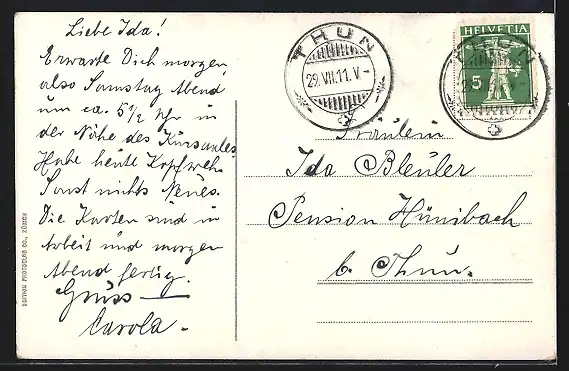 Liebe Ida!
Erwarte Dich morgen
also Samstag Abend
um ca. 5 1/2 Uhr in
der Nähe des Kursaales.
Habe heute Kopfweh.
Sonst nichts Neues.
Die Karten sind in
Arbeit und morgen
Abend fertig.
Gruss
Carola.
THUN
29.VII.11.V-
HELVETIA
5
THUN
Fräulein
Ida Bleuler
Pension Hünibach
b. Thun.
EDITION PHOTOGLOB CO., ZÜRICH